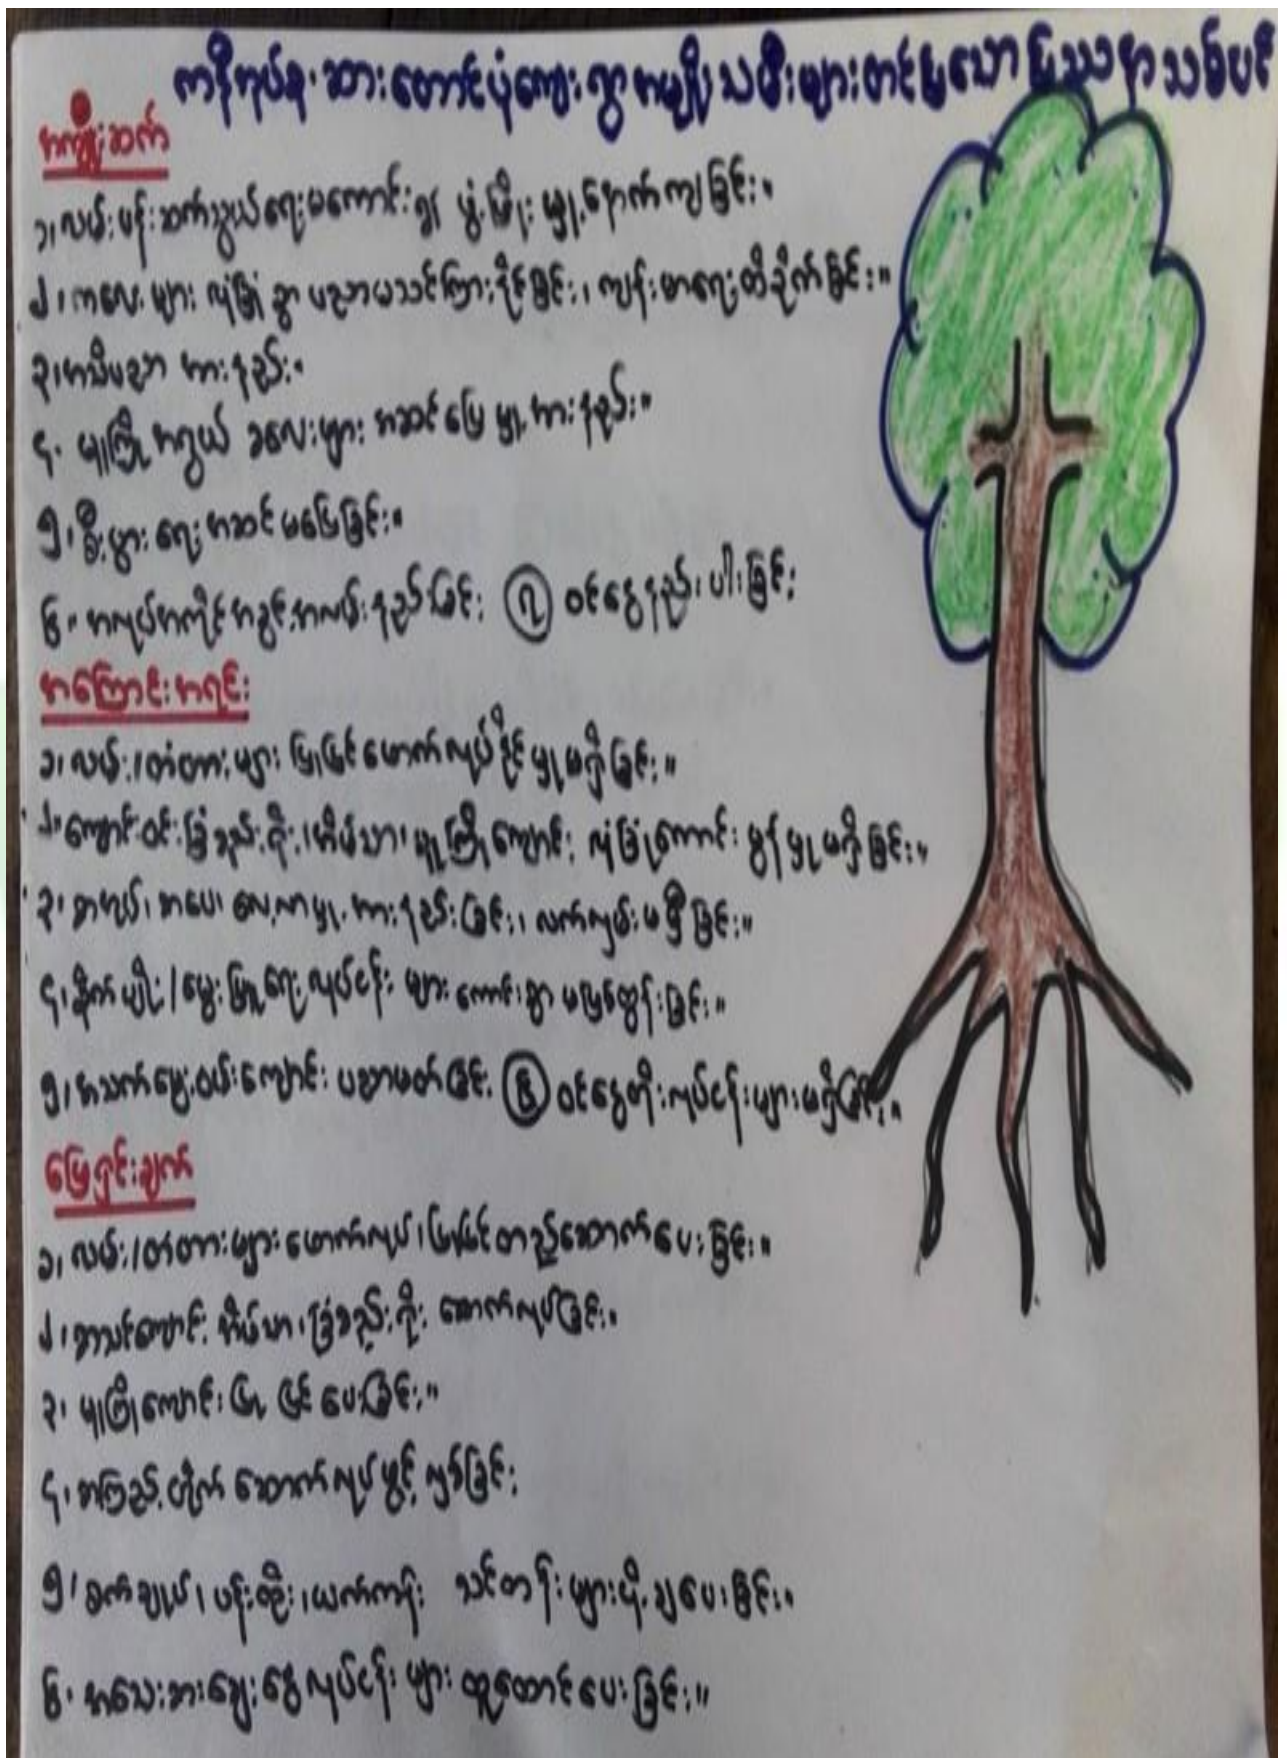 ကနီအုပ်စု၊ ဆားတောင်ပုံကျေးရွာ အမျိုးသမီးများတင်ပြသော ပြဿနာသစ်ပင်
အကျိုးဆက်
၁၊ လမ်းပန်းဆက်သွယ်ရေးမကောင်း၍ ဖွံ့ဖြိုးမှု့နောက်ကျခြင်း။
၂၊ ကလေးများ လုံခြုံစွာ ပညာမသင်ကြားနိုင်ခြင်း၊ ကျန်းမာရေးထိခိုက်ခြင်း။
၃၊ အသိပညာ အားနည်း။
၄. မူကြိုအရွယ် ခလေးများ အဆင်ပြေမှု့အားနည်း။
၅၊ စီးပွားရေး အဆင်မပြေခြင်း။
၆။ အလုပ်အကိုင်အခွင့်အလမ်းနည်းခြင်း ၇ ဝင်ငွေနည်းပါးခြင်း
အကြောင်းအရင်း
၁၊ လမ်း/တံတားများ ပြုပြင်ဖောက်လုပ်နိုင်မှုမရှိခြင်း။
၂။ ကျောင်းဝင်းခြံစည်းရိုး၊ အိမ်သာ၊ မူကြိုကျောင်း လုံခြုံကောင်းမွန်မှုမရှိခြင်း။
၃၊ စာအုပ်၊ စာပေ၊ လေ့လာမှု့အားနည်းခြင်း၊ လက်လှမ်းမမှီခြင်း။
၄၊ စိုက်ပျိုး/မွေးမြူရေးလုပ်ငန်းများ ကောင်းစွာ မဖြစ်ထွန်းခြင်း။
၅၊ အသက်မွေးဝမ်းကျောင်း ပညာမတတ်ခြင်း ၆ ဝင်ငွေတိုးလုပ်ငန်းများမရှိခြင်း။
ဖြေရှင်းချက်
၁၊ လမ်း/တံတားများ ဖောက်လုပ်၊ ပြုပြင်တည်ဆောက်ပေးခြင်း။
၂၊ စာသင်ကျောင်း အိမ်သာ၊ ခြံစည်းရိုး ဆောက်လုပ်ခြင်း။
၃၊ မူကြိုကျောင်းပြုပြင်ပေးခြင်း။
၄၊ စာကြည့်တိုက် ဆောက်လုပ်ဖွင့်လှစ်ခြင်း
၅၊ စက်ချုပ်၊ ပန်းထိုး၊ ယက်ကန်း သင်တန်းများပို့ချပေးခြင်း။
၆. အသေးစားချေးငွေလုပ်ငန်းများ ထူထောင်ပေးခြင်း။